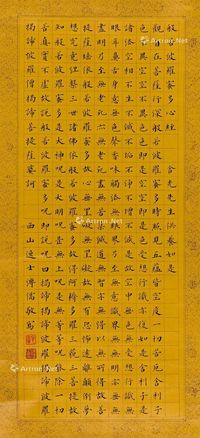 般若波羅蜜多心經 含光先生供養如是
觀自在菩薩行深般若波羅蜜多時照見五蘊皆空度一切苦厄舍利子
色不異空空不異色色即是空空即是色受想行識亦復如是舍利子是
諸法空相不生不滅不垢不淨不增不減是故空中無色無受想行識無
眼耳鼻舌身意無色聲香味觸法無眼界乃至無意識界無無明亦無無明
盡乃至無老死亦無老死盡無苦集滅道無智亦無得以無所得故菩
提薩埵依般若波羅蜜多故心無罣礙無罣礙故無有恐怖遠離顛倒夢
想究竟涅槃三世諸佛依般若波羅蜜多故得阿耨多羅三藐三菩提故
知般若波羅蜜多是大神咒是大明咒是無上咒是無等等咒能除一切
苦真實不虛故說般若波羅蜜多咒即說咒曰揭諦揭諦波羅揭諦波羅
揭諦波羅僧揭諦菩提薩婆訶
西山逸士溥儒敬寫